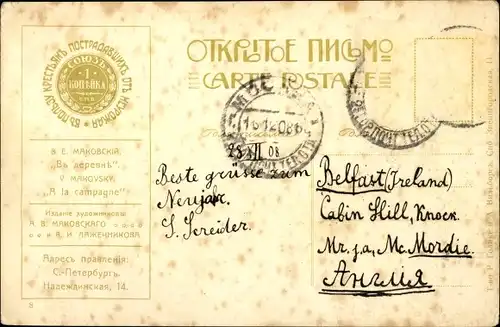 ВЪ ПОЛЬЗУ КРЕСТЬЯНЪ ПОСТРАДАВШИХЪ ОТЪ НЕУРОЖАЯ
СОЮЗЪ
1
КОПѢЙКА
В. Е. МАКОВСКІЙ
„Въ деревнѣ".
V. MAKOVSKY
„A la campagne".
Изданіе художниковъ
А. В. МАКОВСКАГО
и И. ЛАЖЕЧНИКОВА
Адресъ правленія:
С.-Петербургъ.
Надеждинская, 14.
8
ОТКРЫТОЕ ПИСЬМО
CARTE POSTALE
16 12 08
28 XII 08
Beste grüsse zum
Neujahr.
S. Sereider.
Belfast (Ireland)
Cabin Hill, Knock.
Mr. J.A. Mc. Mordie.
Англія